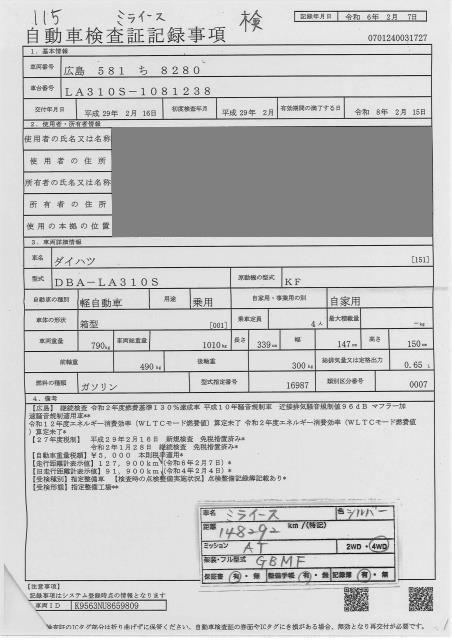 115 ミライース 検
記録年月日 令和 6年 2月 7日
自動車検査証記録事項 0701240031727
1. 基本情報
車両番号 広島 581 ち 8280
車台番号 LA310S-1081238
交付年月日 平成 29年 2月 16日 初度検査年月 平成 29年 2月 有効期間の満了する日 令和 8年 2月 15日
2. 使用者・所有者情報
使用者の氏名又は名称
使用者の住所
所有者の氏名又は名称
所有者の住所
使用の本拠の位置
3. 車両詳細情報
車名 ダイハツ [151]
型式 DBA-LA310S 原動機の型式 KF
自動車の種別 軽自動車 用途 乗用 自家用・事業用の別 自家用
車体の形状 箱型 [001] 乗車定員 4人 最大積載量 -kg
車両重量 790kg 車両総重量 1010kg 長さ 339cm 幅 147cm 高さ 150cm
前軸重 490kg 後軸重 300kg 総排気量又は定格出力 0.65 L
燃料の種類 ガソリン 型式指定番号 16987 類別区分番号 0007
4. 備考
【広島】 継続検査 令和2年度燃費基準130%達成車 平成10年騒音規制車 近接排気騒音規制値96dB マフラー加
速騒音規制適用車**
令和12年度エネルギー消費効率(WLTCモード燃費値)算定未了 令和2年度エネルギー消費効率(WLTCモード燃費値
)算定未了*
【27年度税制】 平成29年2月16日 新規検査 免税措置済み**
令和2年1月28日 継続検査 免税措置済み*
【自動車重量税額】¥5,000 本則税率適用*
【走行距離計表示値】127,900km(令和6年2月7日)*
【旧走行距離計表示値】91,900km(令和4年2月4日)*
【受検種別】指定整備車 【検査時の点検整備実施状況】点検整備記録簿記載あり*
【受検形態】指定整備工場**
車名 ミライース 色 シルバー
距離 148292 km/(特記)
ミッション AT 2WD・4WD
架装・フル型式 GBMF
保証書 有・無 整備手帳 有・無 記録簿 有・無
【注意事項】
記録事項はシステム登録時点の情報となります
車両ID K9563NU8659809
検査証のICタグ部分は折り曲げずに保管ください。自動車検査証の券面やICタグに損傷がある場合、無効となり再交付が必要です。